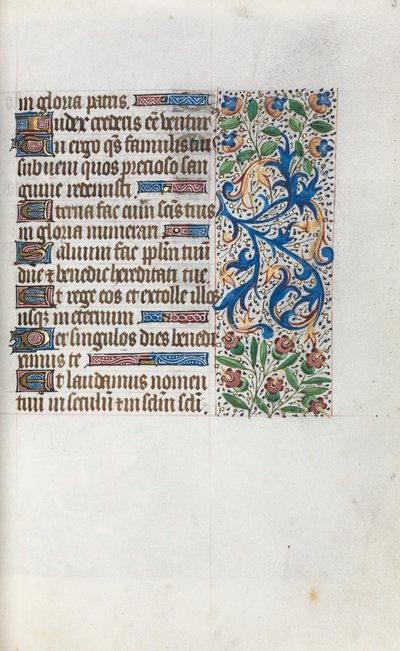 in gloria patris.
Iudex crederis eē ventur᷒
Te ergo q̄s famulis tuis
subveni quos precioso san
guine redemisti.
Eterna fac cum scīs tuis
in gloria numerari.
Saluum fac pplm tuū
dn̄e & benedic hereditati tue.
Et rege eos et extolle illos
usqȝ in eternum
Per singulos dies benedi
cimus te
Et laudamus nomen
tuū in seculū & in sclm̄ scli.